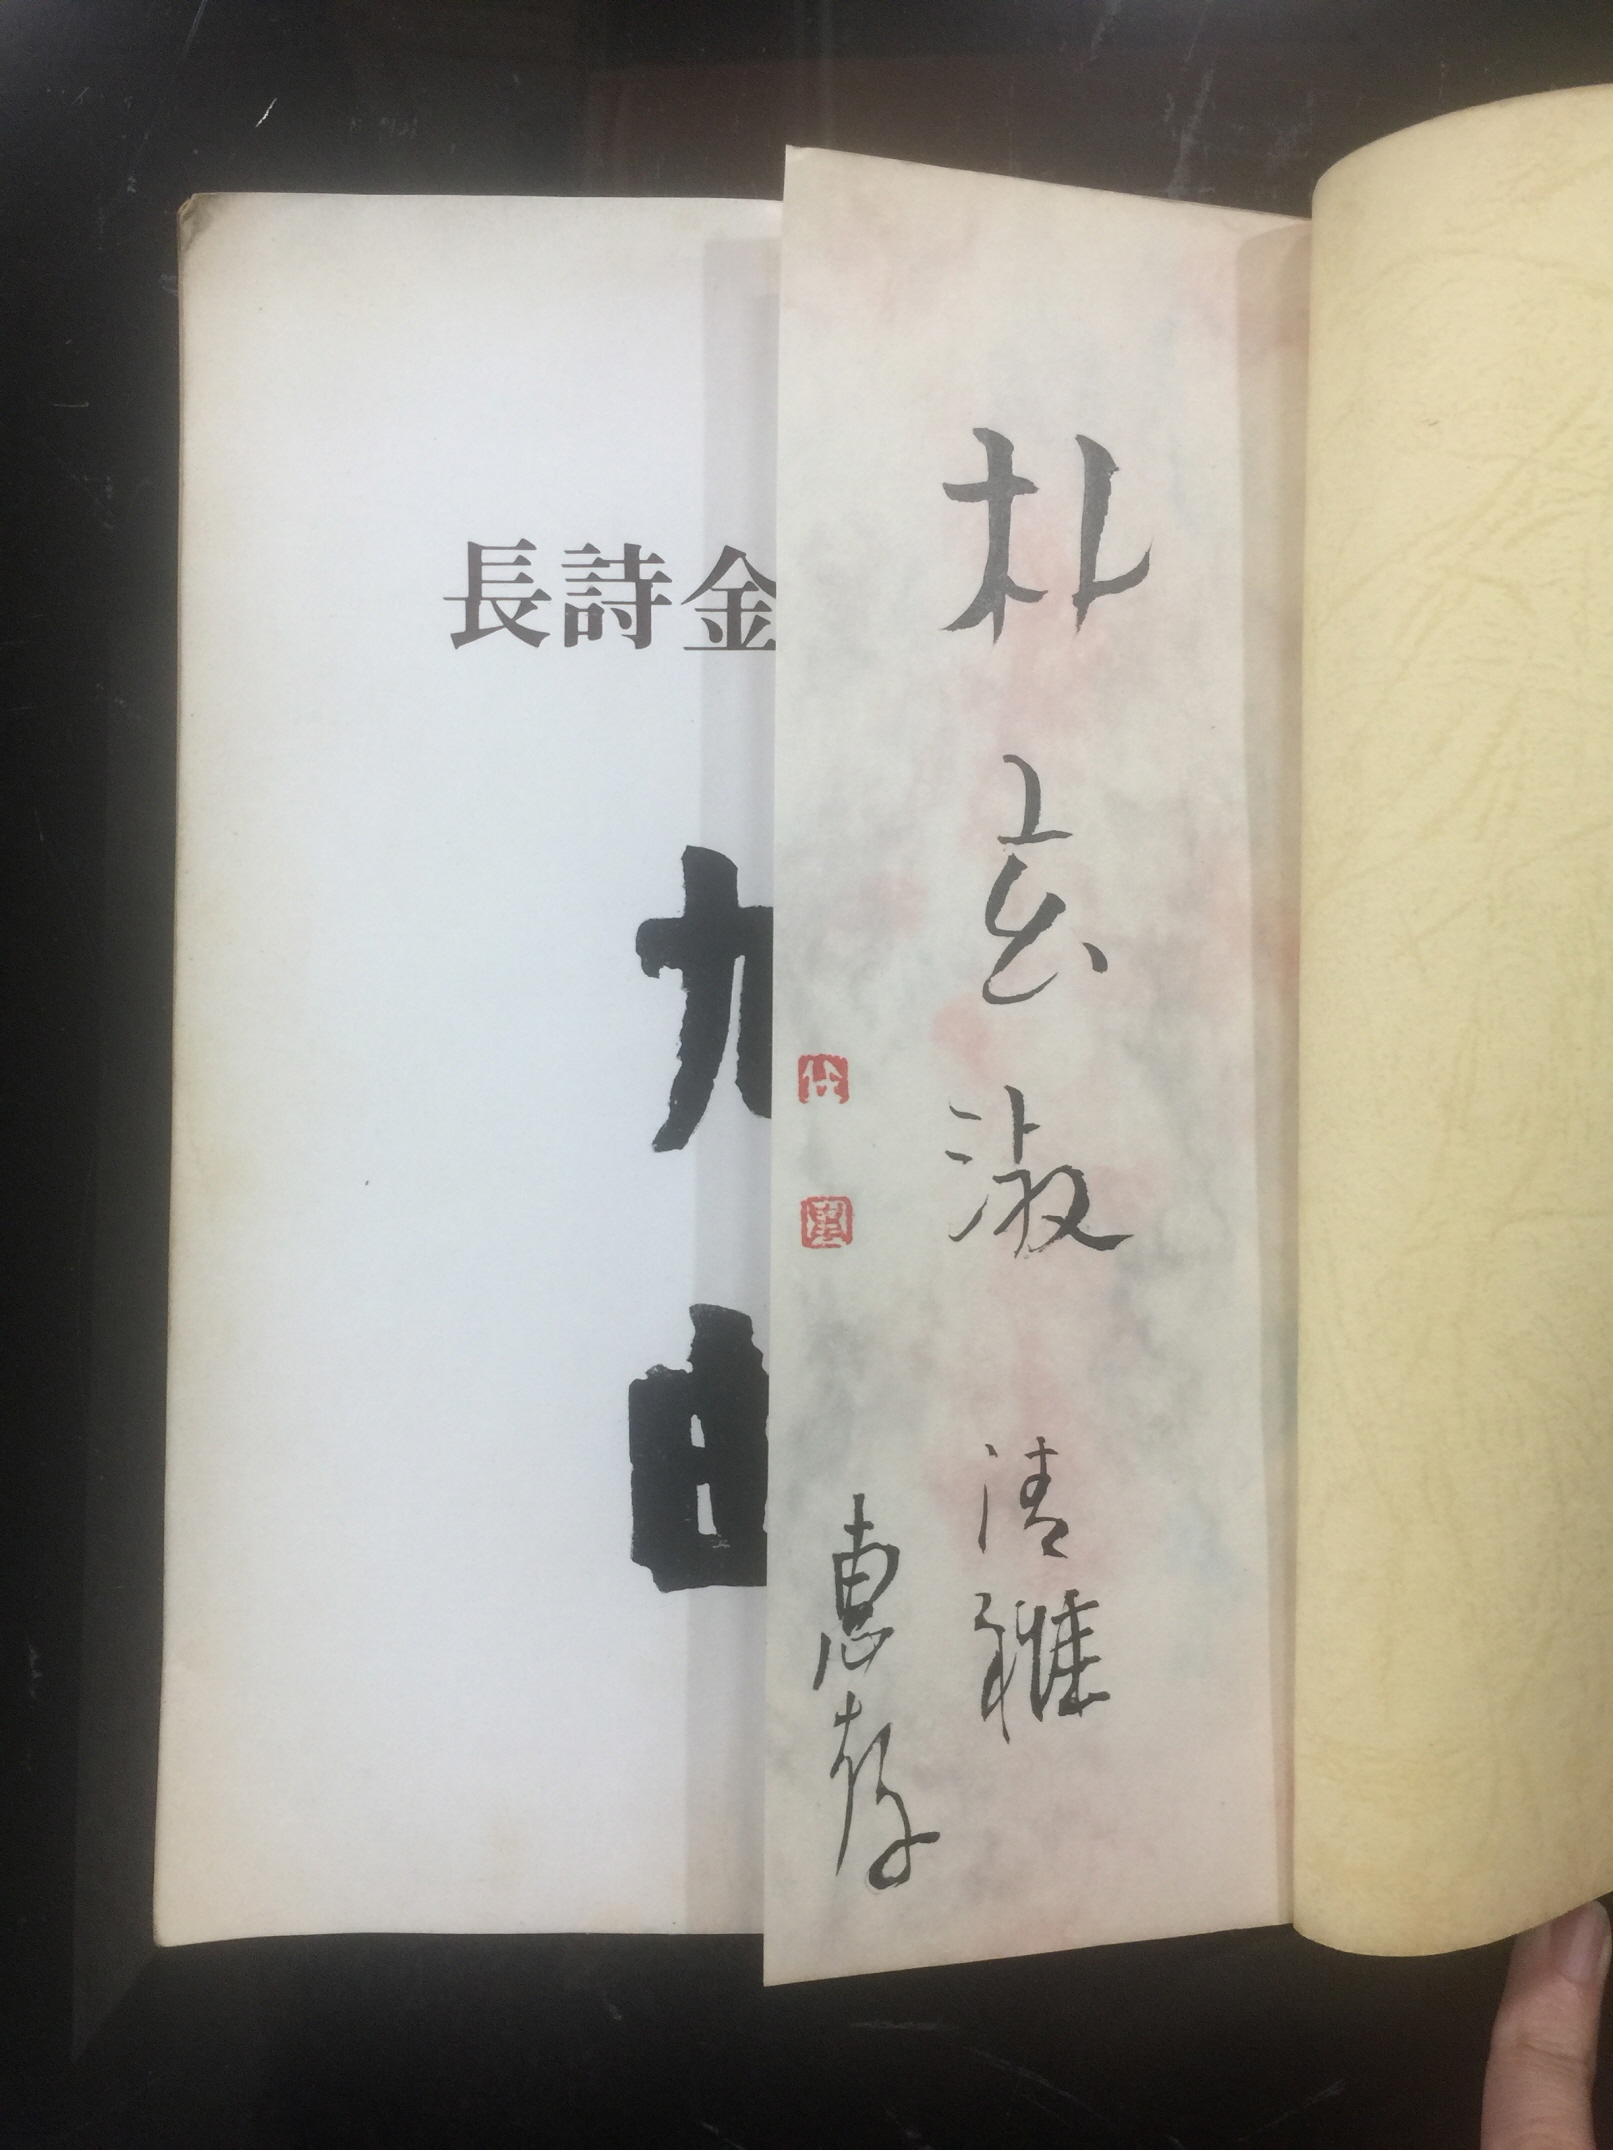 長詩金
朴玄淑 清雅
惠存